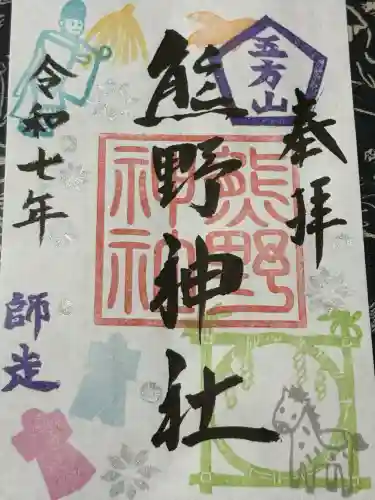 奉拝
五方山
熊野神社
熊野神社
令和七年
師走